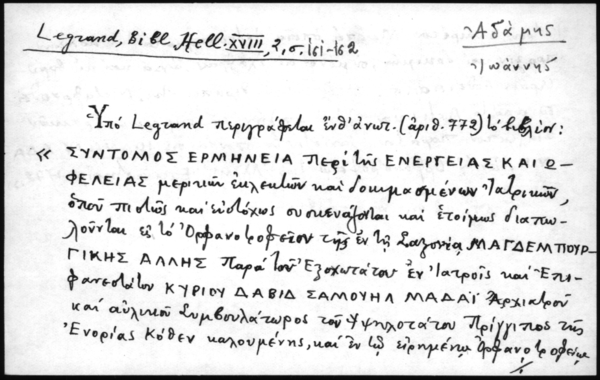 Legrand, Bibl. Hell. XVIII, 2, σ. 161-162
Ἀδάμης
Ἰωάννης
Ὑπὸ Legrand περιγράφεται ἔνθ' ἀνωτ. (ἀριθ. 772) τὸ βιβλίον:
« ΣΥΝΤΟΜΟΣ ΕΡΜΗΝΕΙΑ Περὶ τῆς ΕΝΕΡΓΕΙΑΣ ΚΑΙ Ω-
ΦΕΛΕΙΑΣ μερικῶν ἐκλεκτῶν καὶ δοκιμασμένων Ἰατρικῶν,
ὁποῦ πιστῶς καὶ εὐστόχως συσκευάζονται καὶ ἑτοίμως διαπω-
λοῦνται εἰς τὸ Ὀρφανοτροφεῖον τῆς ἐν τῇ Σαξονίᾳ ΜΑΓΔΕΜΠΟΥΡ-
ΓΙΚΗΣ ΑΛΛΗΣ Παρὰ τοῦ Ἐξοχωτάτου ἐν Ἰατροῖς καὶ Ἐπι-
φανεστάτου ΚΥΡΙΟΥ ΔΑΒΙΔ ΣΑΜΟΥΗΛ ΜΑΔΑΪ Ἀρχιατροῦ
καὶ αὐλικοῦ Συμβουλάτωρος τοῦ Ὑψηλοτάτου Πρίγγιπος τῆς
Ἐνορίας Κόθεν καλουμένης, καὶ ἐν τῷ εἰρημένῳ Ὀρφανοτροφείῳ